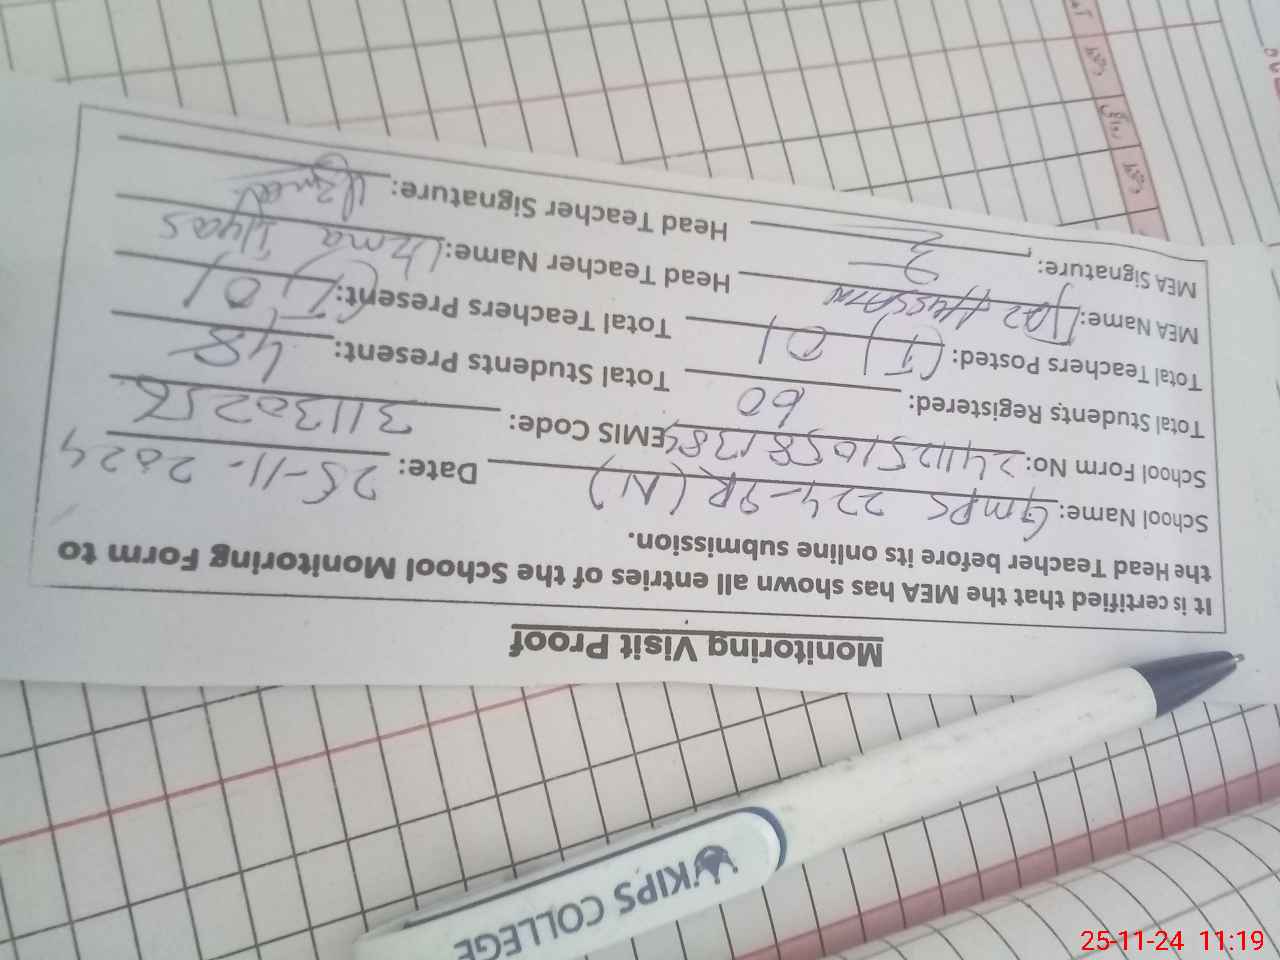 Monitoring Visit Proof
It is certified that the MEA has shown all entries of the School Monitoring Form to
the Head Teacher before its online submission.
School Name: GMPS 224-9R (N) Date: 25-11-2024
School Form No: EMIS Code: 31130256
Total Students Registered: 60 Total Students Present: 48
Total Teachers Posted: (T) 01 Total Teachers Present: (T) 01
MEA Name: Head Teacher Name: Uzma Ilyas
MEA Signature: Head Teacher Signature: Uzma
KIPS COLLEGE
25-11-24 11:19